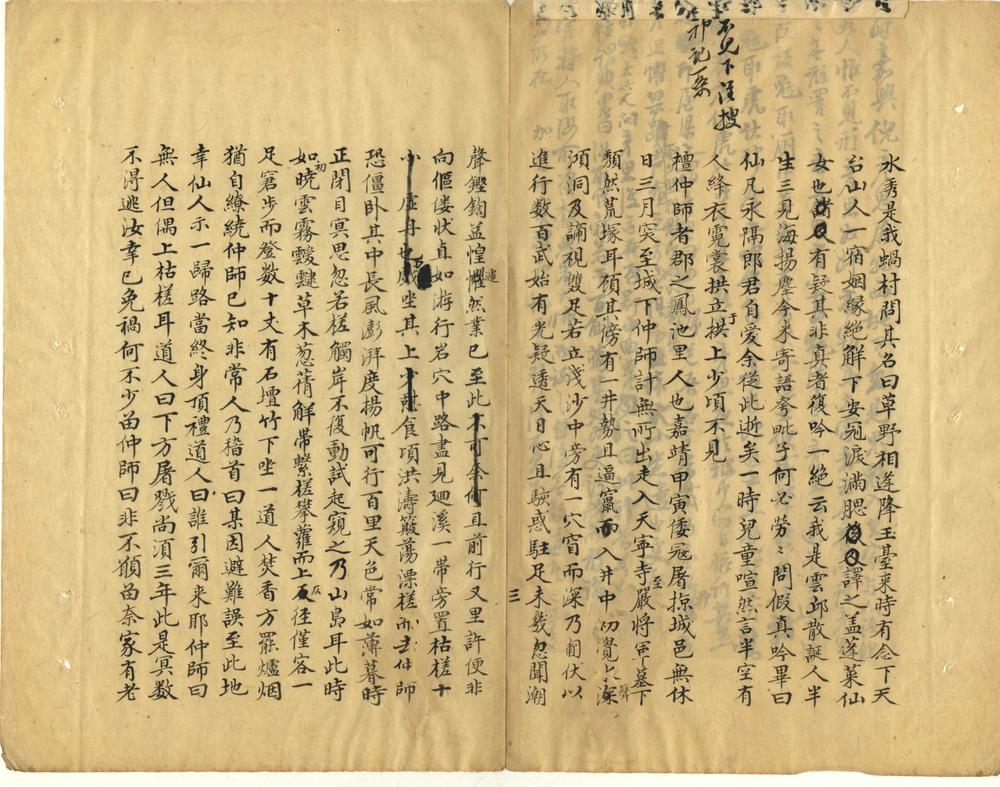 不見下溼搜
神記一条
水秀是我蝸村問其名曰草野相逢降玉臺来時有念下天
台山人一宿姻緣絶解下安冠淚滿腮譯之盖蓬萊仙
女也有疑其非真者復吟一絶云我是雲邱散誕人半
生三見海揚塵今来寄語夸毗子何必勞〻問假真吟畢曰
仙凡永隔郎君自愛余従此逝矣一時兒童喧然言半空有
人絳衣霓裳拱立拱于上少頃不見
檀仲師者郡之鳳池里人也嘉靖甲寅倭冦屠掠城邑無休
日三月突至城下仲師計無所出走入天寧寺至嚴将軍墓下
頽然荒塚耳顧其傍有一井勢且逼竄而入井中切覺水聲深
澒洞及誦視雙足若立淺沙中旁有一穴窅而深乃匍伏以
進行数百武始有光疑透天日心且駭惑駐足未幾忽聞潮
三
聲鏗鍧益惶遽懼然業已至此不可奈何且前行又里許便非
向傴僂状直如游行岩穴中路盡見廻溪一帶旁置枯槎十
小虚舟也坐其上少憩食頃洪濤簸蕩漂槎而去仲師
恐僵卧其中長風澎湃度揚帆可行百里天色常如薄暮時
正閉目冥思忽若槎觸岸不復動試起窺之乃山島耳此時
如初曉雲霧靉靆草木葱蒨解帶繫槎攀蘿而上反径僅容一
足窘步而登数十丈有石壇竹下坐一道人焚香方罷爐烟
猶自繚繞仲師已知非常人乃稽首曰某因避難誤至此地
幸仙人示一歸路當終身頂禮道人曰誰引爾来耶仲師曰
無人但偶上枯槎耳道人曰下方屠戮尚須三年此是冥数
不淂逃汝幸已免禍何不少畄仲師曰非不願畄奈家有老